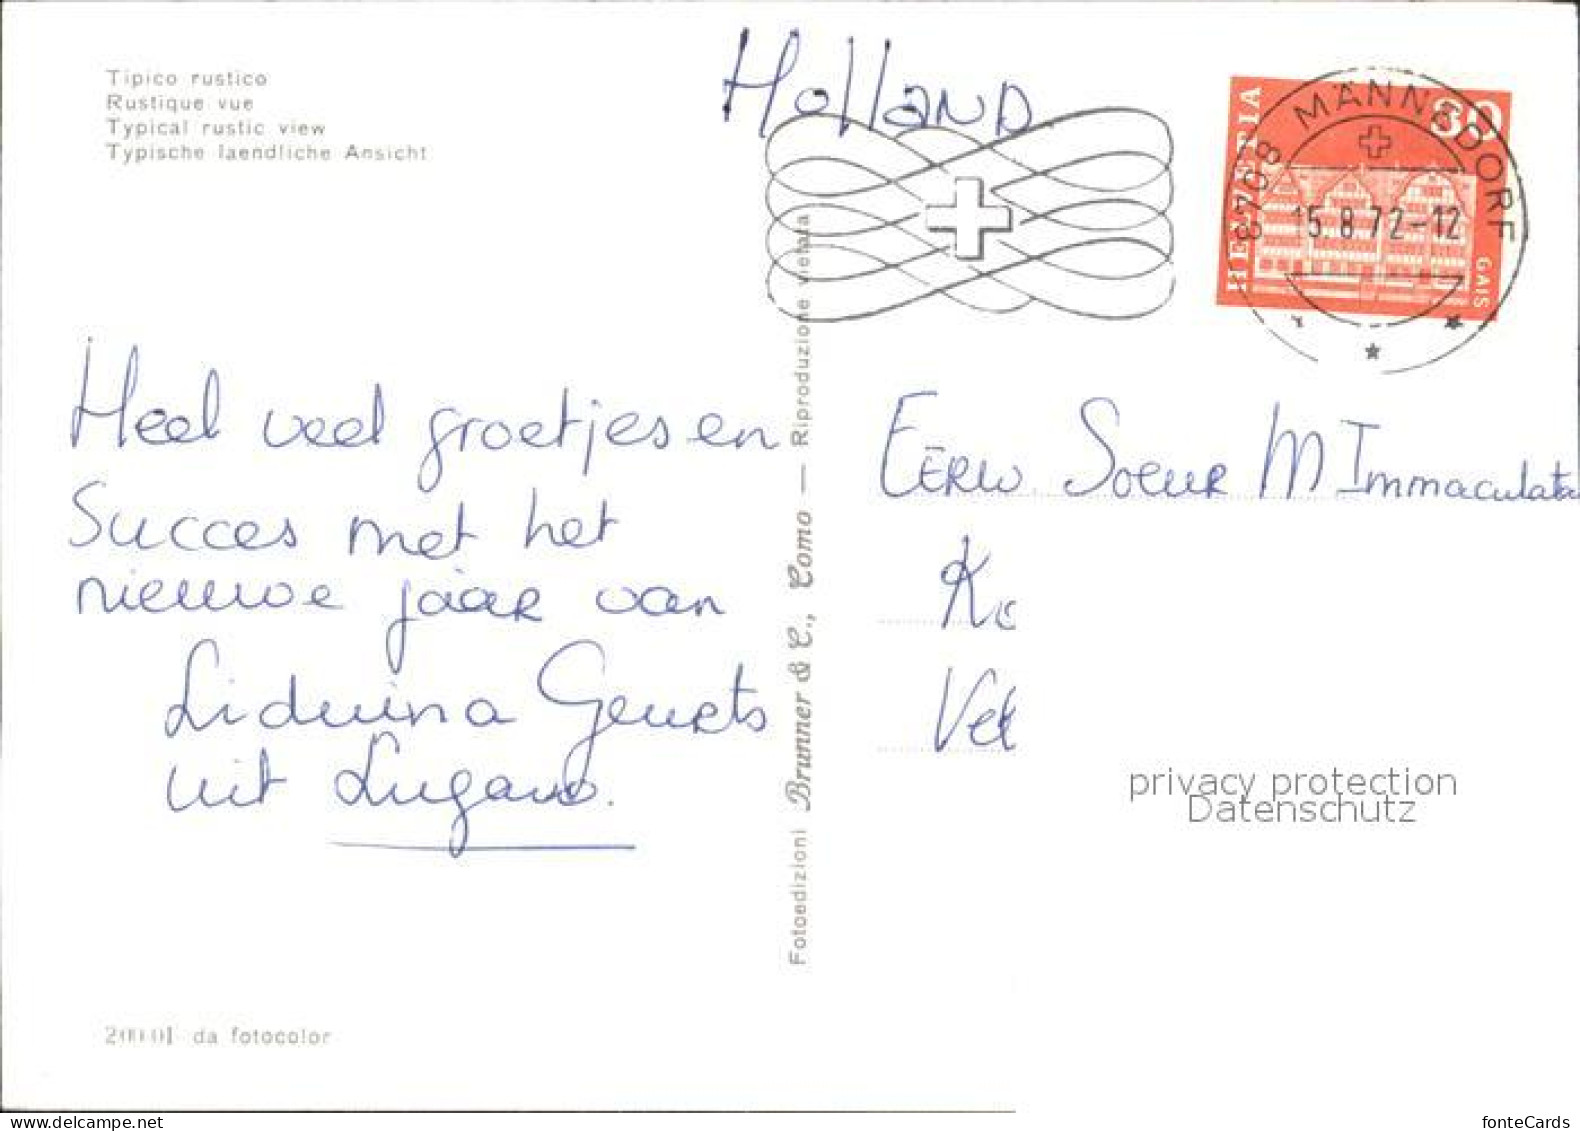 Tipico rustico
Rustique vue
Typical rustic view
Typische laendliche Ansicht
Holland
HELVETIA
30
GAIS
8708 MÄNNEDORF
15.8.72-12
Heel veel groetjes en
Succes met het
nieuwe jaar van
Liduina Geurts
uit Lugano.
Eerw. Soeur M Immaculata
privacy protection
Datenschutz
Fotoedizioni Brunner & C., Como — Riproduzione vietata
da fotocolor
fonteCards